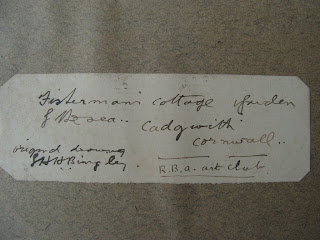 Fisherman's cottage Garden
by the sea.. Cadgwith
Cornwall..
original drawing
H.H. Bingley
R.B.A. art Club